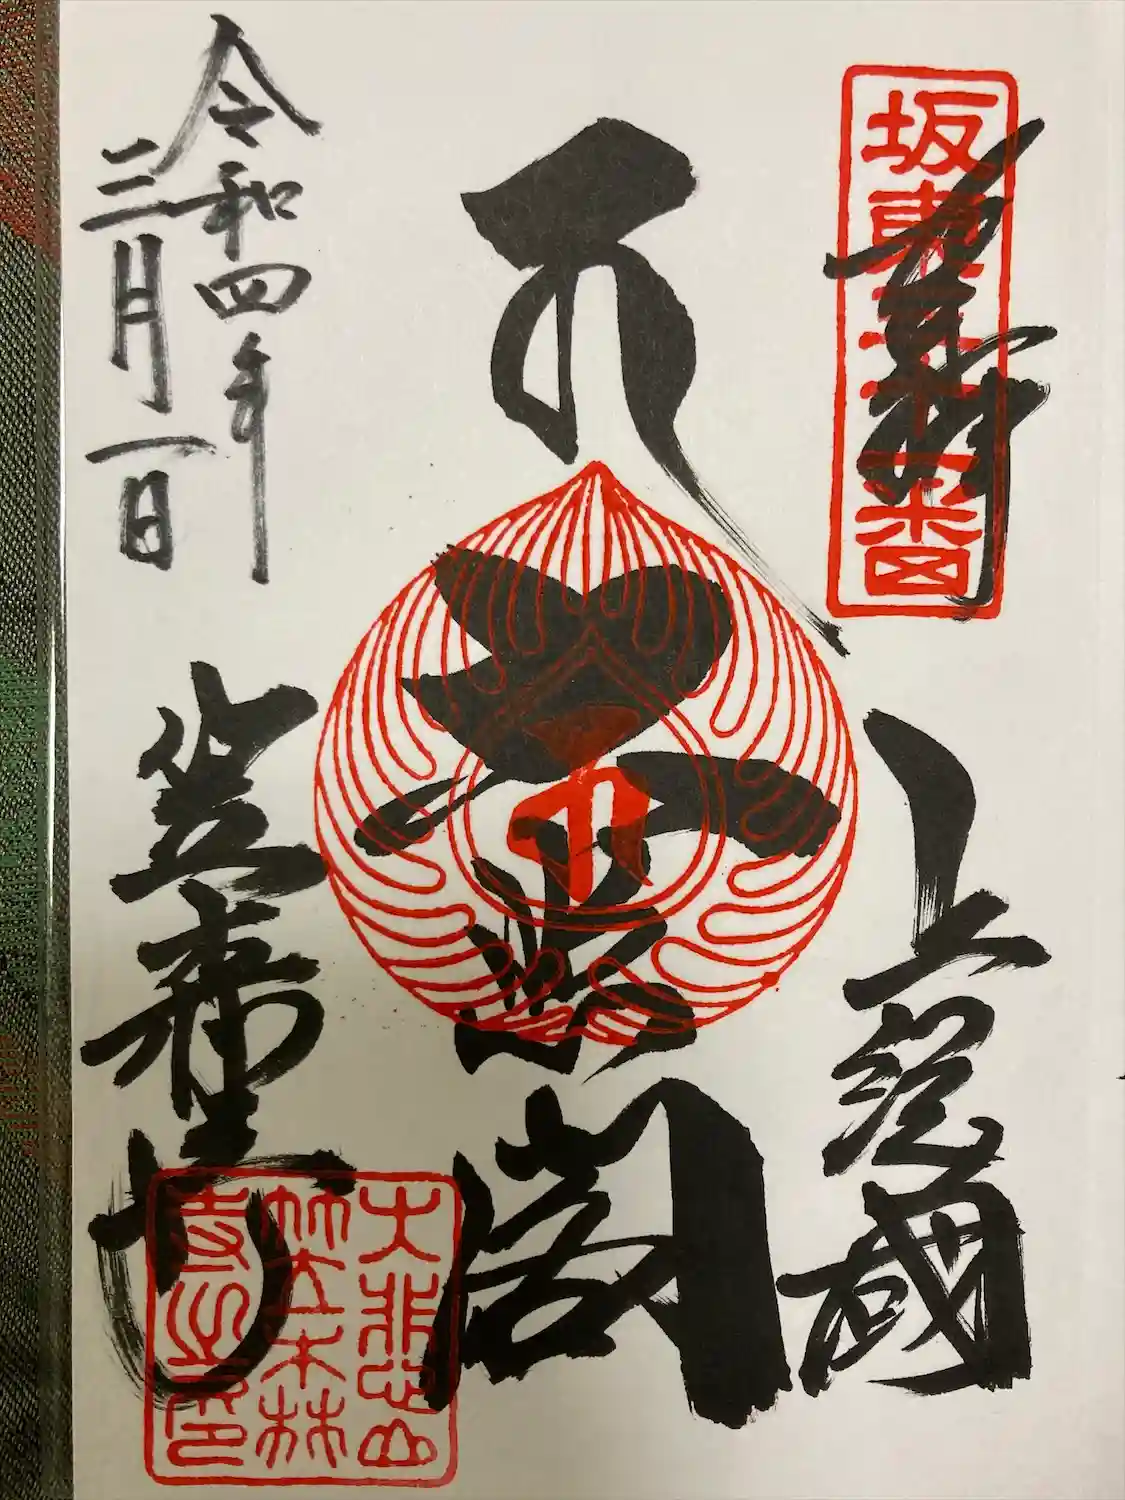 坂東三十一番
奉拝
上総國
大悲閣
令和四年
三月一日
笠森寺
大悲山
笠森
寺之印